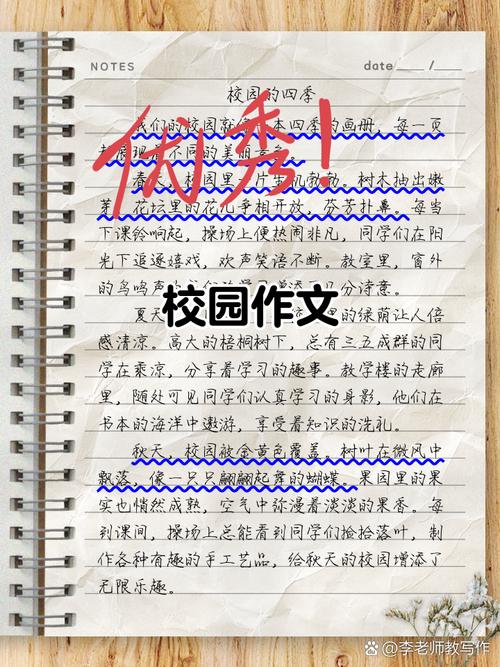 NOTES
date / 
校园的四季
优秀！
我们的校园就 本四季的画册，每一页
不同的美丽
春天，校园里一片生机勃勃。树木抽出嫩
芽，花坛里的花儿争相开放，芬芳扑鼻。每当
下课铃响起，操场上便热闹非凡，同学们在阳
光下追逐嬉戏，欢声笑语不断。教室里，窗外
的鸟鸣声 添 几分诗意。
校园作文
夏天 里的绿荫让人倍
感清凉。高大的梧桐树下，总有三五成群的同
学在乘凉，分享着学习的趣事。教学楼的走廊
里，随处可见同学们认真学习的身影，他们在
书本的海洋中遨游，享受着知识的洗礼。
秋天，校园被金黄色覆盖。树叶在微风中
飘落，像一只只翩翩起舞的蝴蝶。果园里的果
实也悄然成熟，空气中弥漫着淡淡的果香。每
到课间，操场上总能看到同学们捡拾落叶，制
作各种有趣的手工艺品，给秋天的校园增添了
无限乐趣。
李老师教写作